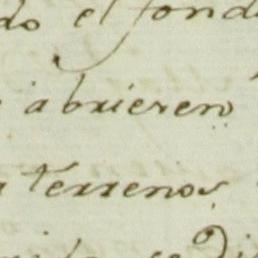 do el fond
abrieren
terrenos
se di